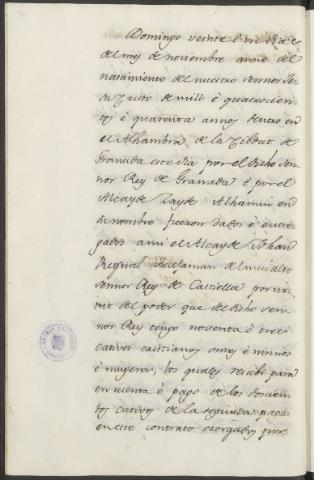 Domingo veinte è nueve dias
del mes de noviembre anno del
nascimiento del nuestro sennor Je-
su Cristo de mill è quatrocien-
tos è quarenta annos dentro en
el Alhambra de la Cibdat de
Granada este dia por el dicho sen-
nor Rey de Granada è por el
Alcayde Sayde Alhamin en
su nombre fueron dados è entre-
gados a mi el Alcayde Johan
de nuestro
sennor Rey de Castiella por vir-
tut del poder que del dicho sen-
nor Rey tengo noventa è tres
cativos cristianos omes è ninnos
è mugeres, los quales recibi para
en cuenta è pago de los docien-
tos cativos de la segunda paga
en este contrato otorgados por-